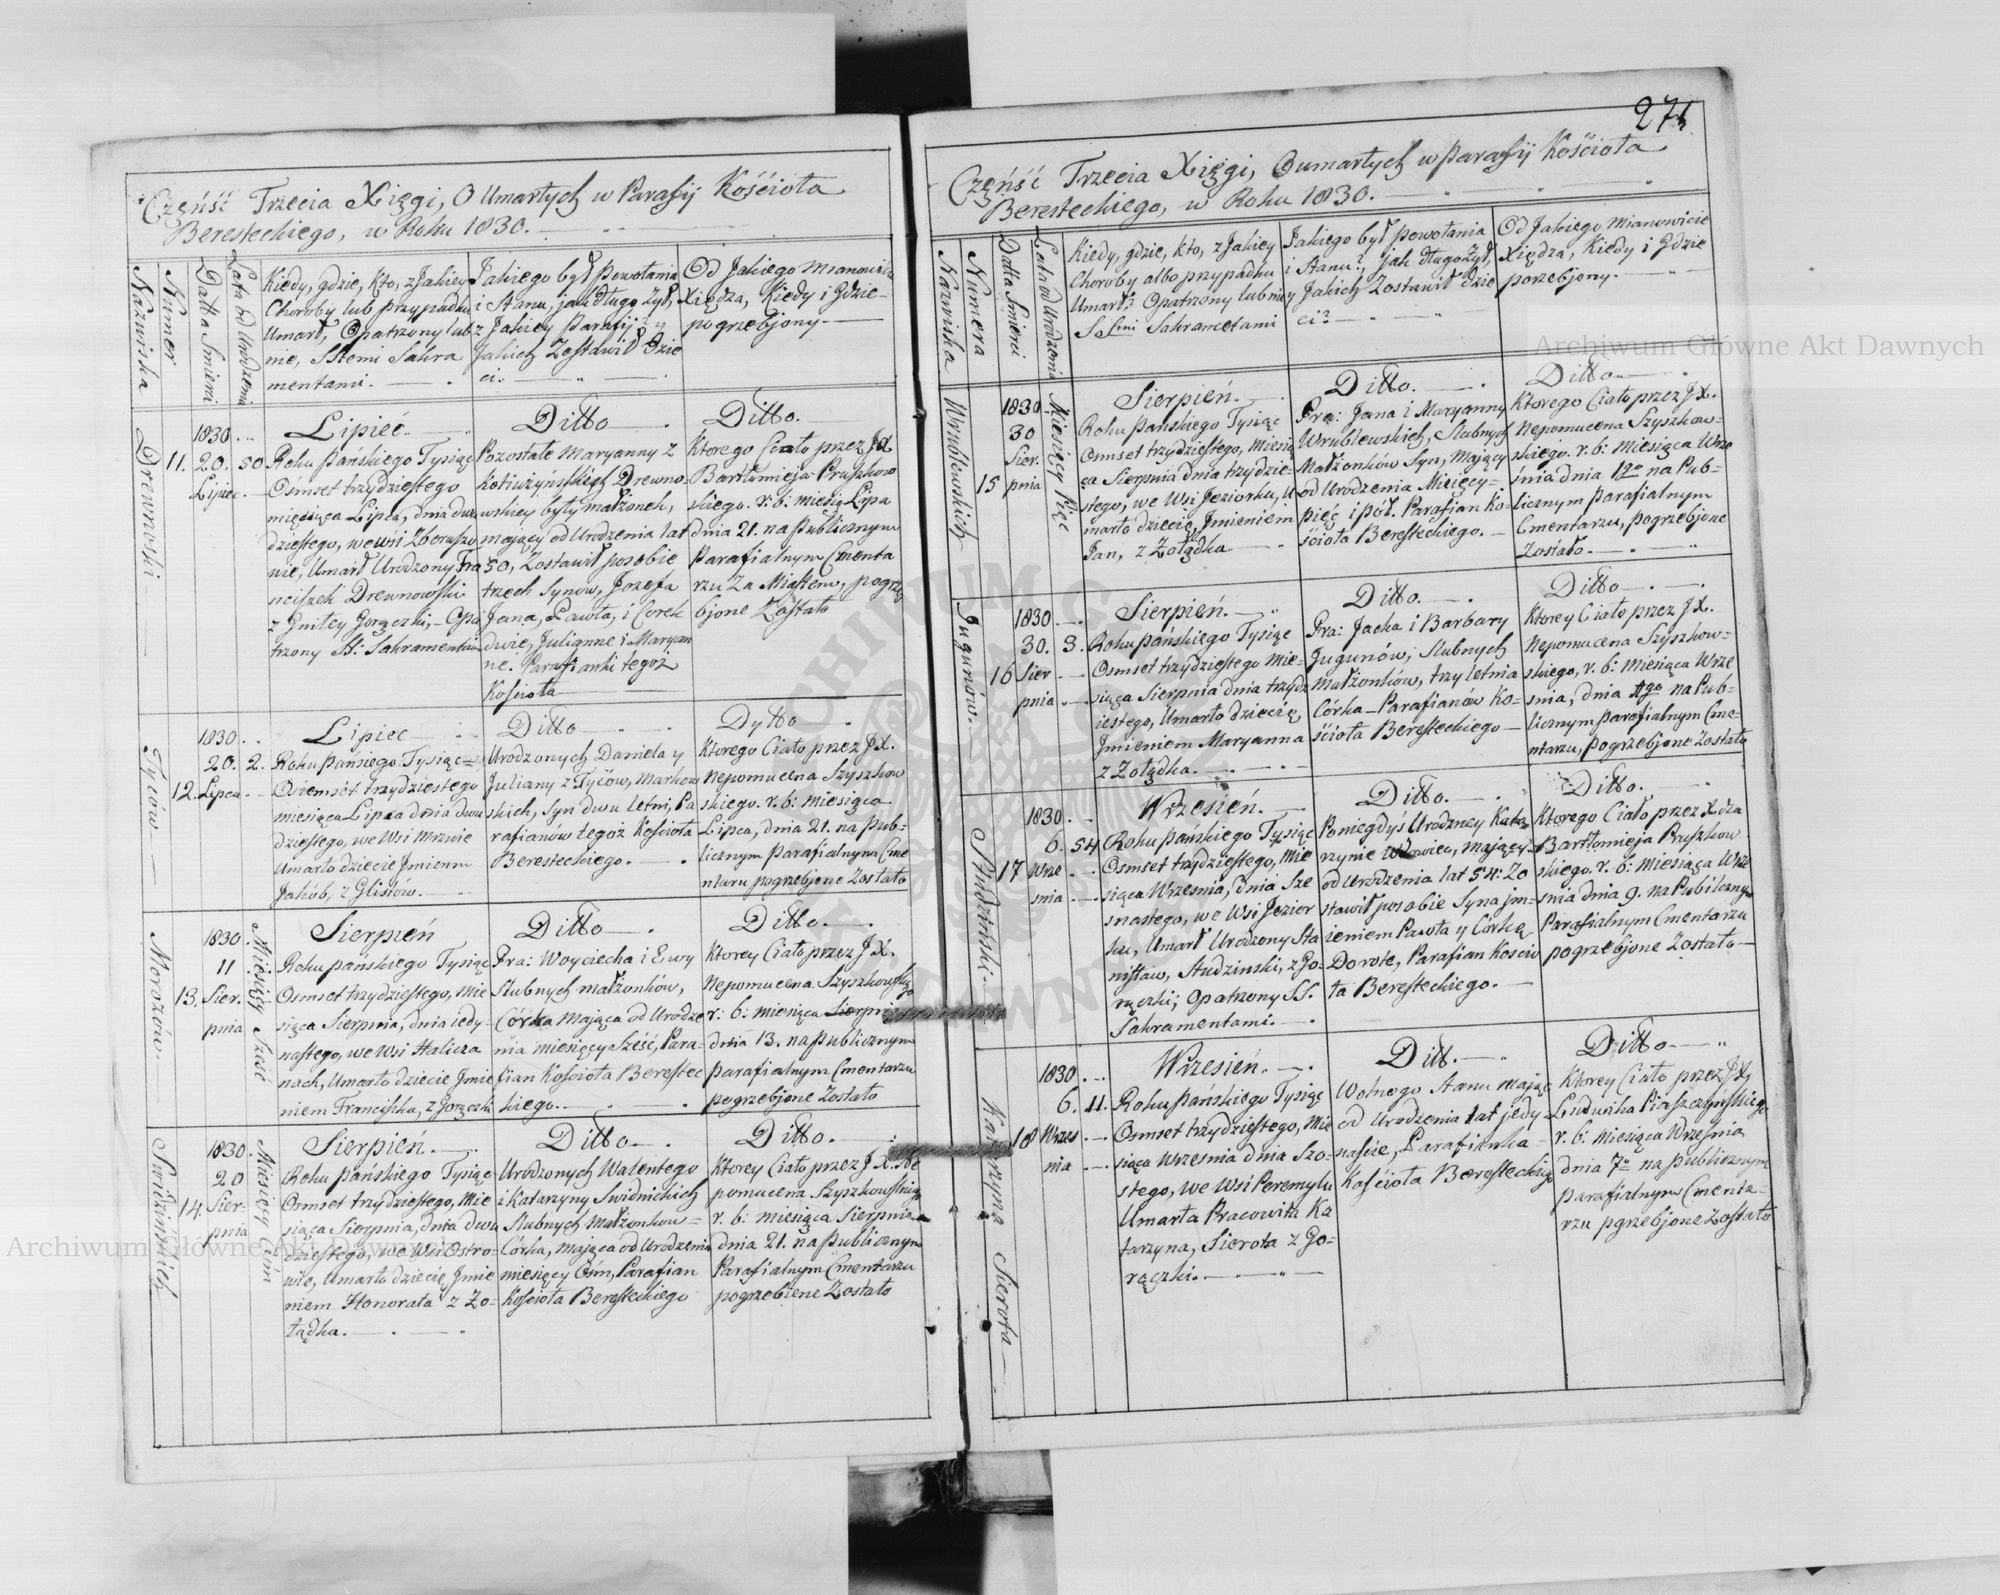 271
Część Trzecia Xięgi, O Umarłych w Parafij Kościoła
Beresteckiego, w Roku 1830.
Nazwiska
Numer
Datta Smierci
Lata od Urodzenia
Kiedy, gdzie, kto, z Jakiey
Choroby lub przypadku
Umarł, Opatrzony lub
nie, SStemi Sakra
mentami.
Jakiego był Powołania
i Stanu, jak długo żył,
z Jakiey Parafij i
Jakich Zostawił Dzie
ci.
Od Jakiego Mianowicie
Xiędza, Kiedy i Gdzie
pogrzebjony.
Drewnoski
11.
1830.
20.
Lipiec.
50
Lipiec.
Roku Pańskiego Tysiąc
Ośmset trzydziestego
miesiąca Lipca, dnia dwu
dziestego, we wsi Zboryszo
wie, Umarł Urodzony Fra
nciszek Drewnowski
z Gniłey Gorączki, Opa
trzony St: Sakramentami
Ditto
Pozostałe Maryanny z
Kotiużyńskich Drewno
wskiey były małżonek,
mający od Urodzenia lat
50, Zostawił po sobie
trzech Synow, Jozefa
Jana, Pawła, i Corek
dwie, Julianne i Maryan
ne. Parafianki tegoż
Kościoła
Ditto.
Ktorego Ciało przez JX
Bartłomieja Pruszkow
skiego. r. b: miesią Lipa
dnia 21. na Publicznym
Parafialnym Cmenta
rzu Za Miastem, pogrze
bjone Zostało
Tyców
12.
1830.
20.
Lipca.
2.
Lipiec
Roku Pańsiego Tysiąc
Osiemsét trzydziestego
miesiąca Lipca dnia dwu
dziestego, we Wsi Mrwie
Umarło dziecie Jmieniem
Jakób, z Glistów.
Ditto
Urodzonych Daniela y
Juliany z Tyców, Markow
skich, Syn dwu letni, Pa
rafianów tegoż Kościoła
Beresteckiego.
Dytto
Ktorego Ciało przez JX.
Nepomucena Szyszkow
skiego. r. b: miesiąca
Lipca, dnia 21. na Pub-
licznym Parafialnym Cme
ntaru pogrzebjone Zostało
Morozów
13.
1830.
11
Sier.
pnia
Miesięcy Szesć
Sierpień
Roku Pańskiego Tysiąc
Osmset trzydziestego, mie
siąca Sierpnia, dnia iedy-
nastego, we Wsi Halicza
nach, Umarło dziecie Jmie
niem Franciszka, z Gorączki
Ditto
Pra: Woyciecha i Ewy
Slubnych małżonków,
Córka Mająca od Urodze
nia miesięcy Sześć, Para-
fian Kościoła Berestec
kiego.
Ditto.
Ktorey Ciało przez JX.
Nepomucena Szyszkowskiego
r: b: miesiąca Sierpnia
dnia 13. na publicznym
parafialnym Cmentarzu
pogrzebjone Zostało
Swidzinskich
14.
1830.
20
Sier-
pnia
Miesięcy Osim
Sierpień.
Roku Pańskiego Tysiąc
Osmset trzydziestego, mie
siąca Sierpnia, dnia dwu
dziestego, we Wsi Ostro-
wie, Umarło dziecię Jmie
niem Honorata z Żo-
łądka.
Ditto.
Urodzonych Walentego
i Katarzyny Swidnickich
Slubnych Małżonkow-
Córka, mająca od Urodzenia
miesięcy Ośm, Parafian
Kościoła Beresteckiego
Ditto.
Ktorey Ciało przez JX. Ne
pomucena Szyszkowskiego
r. b: miesiąca Sierpnia
dnia 21. na Publicznym
Parafialnym Cmentarzu
pogrzebiene Zostało
Część Trzecia Xięgi, O umarłych w Parafij Kościoła
Beresteckiego, w Roku 1830.
Nazwiska
Numera
Datta Smierci
Lata od Urodzenia
Kiedy, gdzie, kto, z Jakiey
Choroby albo przypadku
Umarł? Opatrzony lub niey
SStmi Sakrametami
Jakiego był powołania
i Stanu?, jak długo Żył,
Jakich Zostawił Dzie
ci?
Od Jakiego Mianowicie
Xiędza, Kiedy i Gdzie
porzebjony.
Wrublewskich
15
1830.
30
Sier.
pnia
Miesięcy Pięc
Sierpień.
Roku Pańskiego Tysiąc
Osmset trzydziestego, miesią
ca Sierpnia dnia trzydzie-
stego, we Wsi Jeziorku, U
marło dziecię, Jmieniem
Jan, z Żołądka
Ditto.
Pra: Jana i Maryanny
Wrublewskich, Slubnych
Małżonków Syn, Mający
od Urodzenia Miesięcy-
pięc i pół. Parafian Ko-
ścioła Beresteckiego.
Ditto
Ktorego Ciało przez JX.
Nepomucena Szyszkow-
skiego. r. b: Miesiąca Wrze
śnia dnia 1go na Pub-
licznym Parafialnym
Cmentarzu, pogrzebjone
Zostało.
Jugunów.
16
1830
30.
Sier
pnia
3.
Sierpień.
Roku Pańskiego Tysiąc
Osmset trzydziestego Mie-
siąca Sierpnia dnia trzydz
iestego, Umarło dziecię,
Jmieniem Maryanna
z Żołądka.
Ditto.
Pra: Jacka i Barbary
Jugunów, Slubnych
Małżonków, trzy letnia
Córka Parafianów Ko-
ścioła Beresteckiego
Ditto
Ktorey Ciało przez JX.
Nepomucena Szyszkow-
skiego, r. b: Miesiąca Wrze
snia, dnia 1go na Pub-
licznym Parafialnym Cme-
ntarzu, pogrzebjone Zostało
Studziński.
17
1830.
6.
Wrze
snia
54
Wrzesień.
Roku Pańskiego Tysiąc
Osmset trzydziestego, Mie
siąca Wrzesnia, dnia Sze
snastego, we Wsi Jezior
ku, Umarł Urodzony Sta
nisław, Studzinski, z Go-
rączki; Opatrzony SS.
Sahramentami.
Ditto.
Po niegdyś Urodzney Kata
rzynie, mający
od Urodzenia lat 54: Zo
stawił po sobie Syna jm-
ieniem Pawła y Córkę
Dorote, Parafian Koscio
ła Beresteckiego.
Ditto.
Ktorego Ciało przez Xdza
Bartłomieja Pruszkow-
skiego. r. b: Miesiąca Wrze
snia dnia 9. na Publicznym
Parafialnym Cmentarzu
pogrzebjone Zostało
Katarzyna Sierota
18
1830
6.
Wrzes
nia
11.
Wrzesień.
Roku Pańskiego Tysiąc
Osmset trzydziestego, Mie
siąca Wrzesnia dnia Szo-
stego, We Wsi Peremylu
Umarła Pracowita Ka
tarzyna, Sierota z Go-
rączki.
Ditt.
Wolnego Stanu Mając
od Urodzenia lat jedy-
naście, Parafianka
Kościoła Beresteckiego
Ditto
Ktorey Ciało przez JX.
Ludwika Piaszczyńskiego
r. b: Miesiąca Wrzesnia
dnia 7o na Publicznym
Parafialnym Cmenta-
rzu pgrzebjone Zostało
Archiwum Główne Akt Dawnych
Archiwum Główne Akt Dawnych